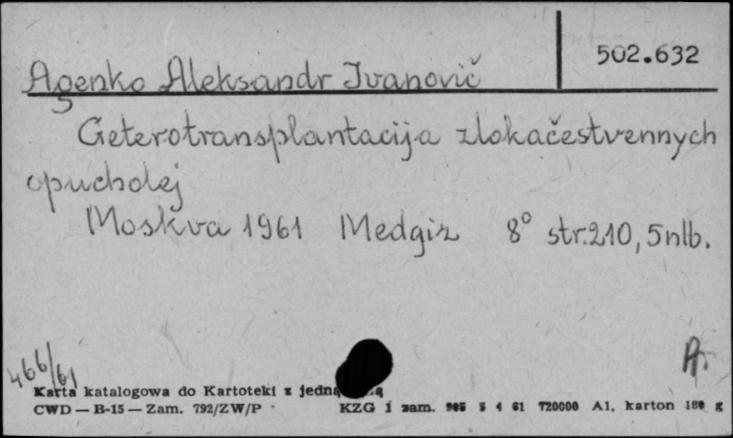 502.632
Agenko Aleksandr Ivanovič
Geterotransplantacija zlokačestvennych
opucholej
Moskva 1961 Medgiz 8° str. 210, 5 nlb.
466/61
Karta katalogowa do Kartoteki z
CWD — B-15 — Zam. 792/ZW/P KZG 1 zam. 5 4 61 T20000 A1. karton g